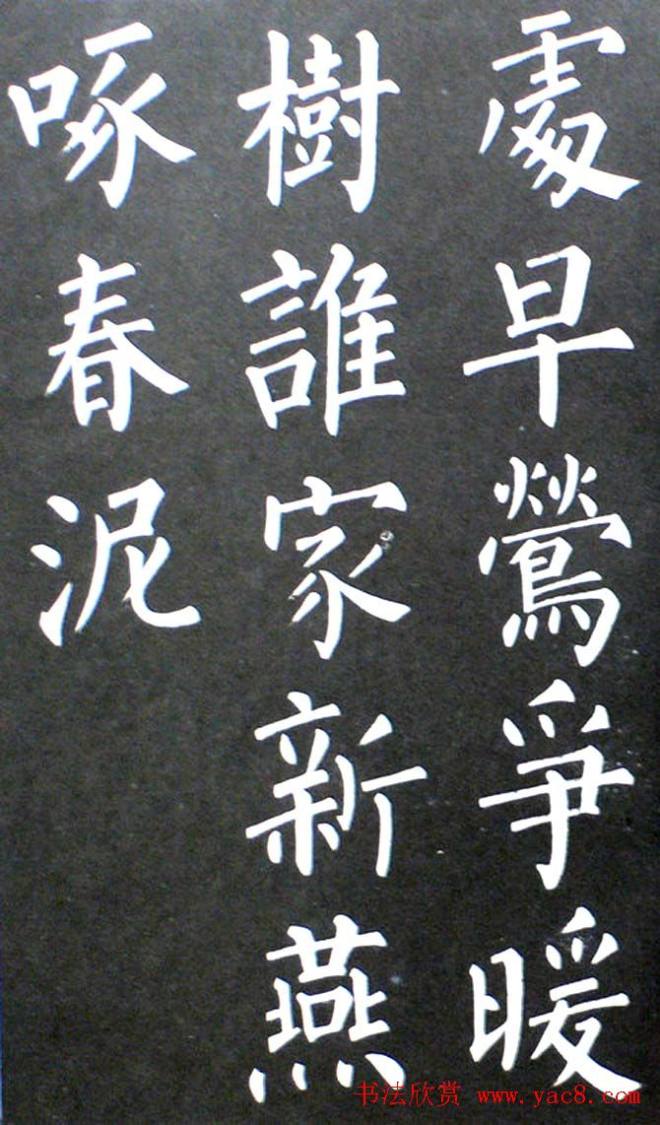 處早鶯爭暖
樹誰家新燕
啄春泥
书法欣赏 www.yac8.com